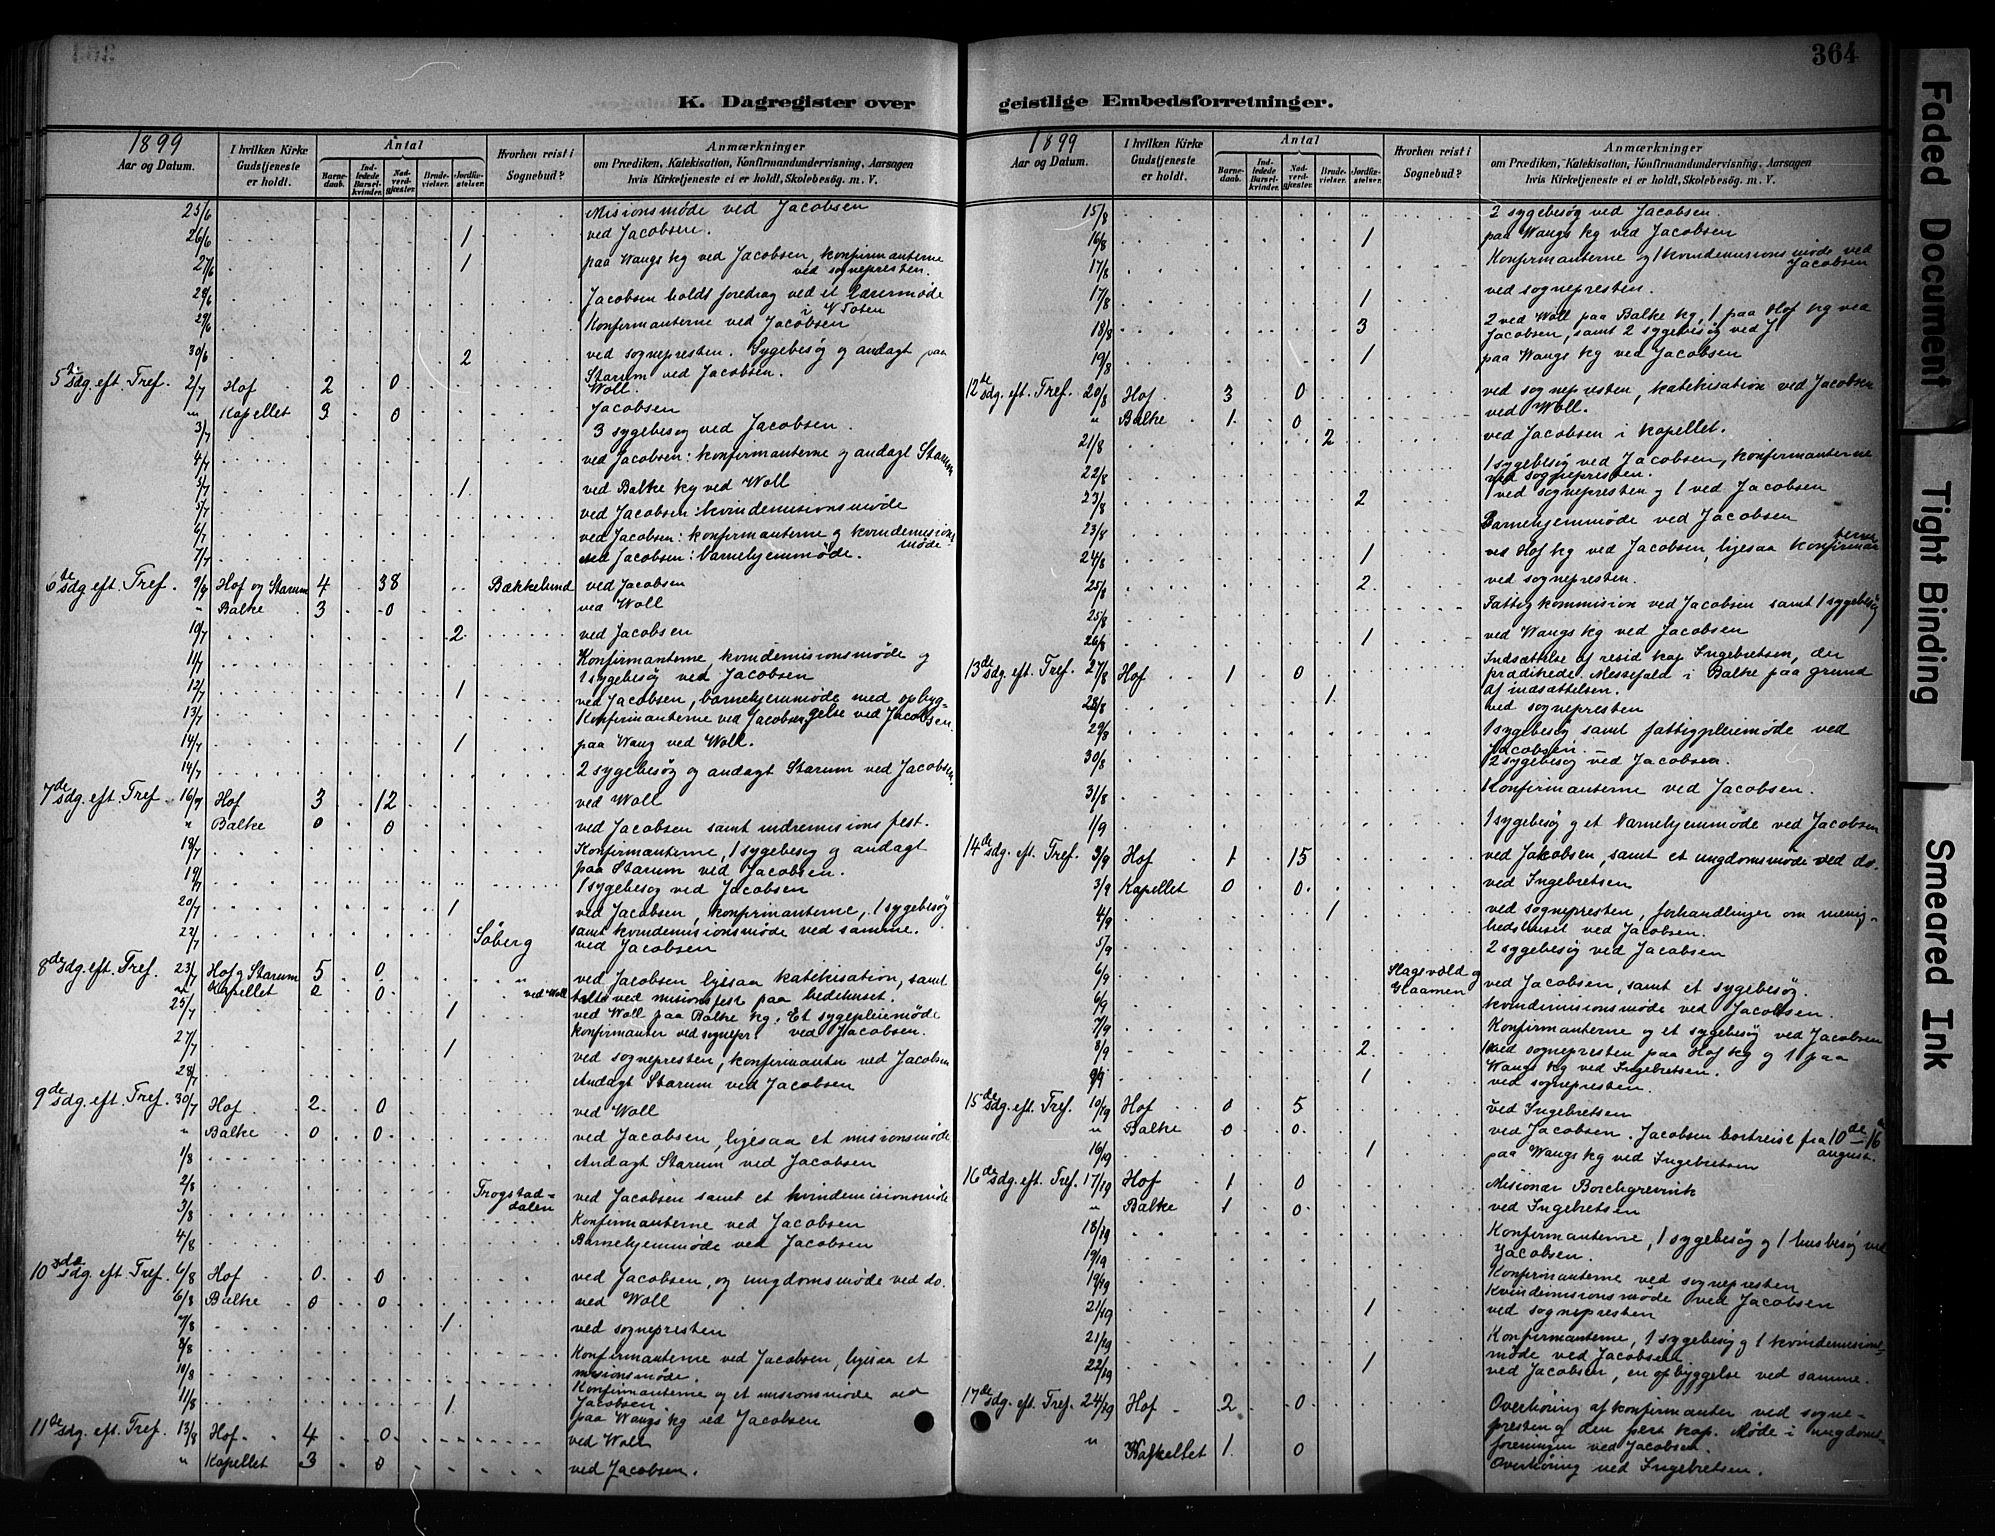 364
K. Dagregister over geistlige Embedsforretninger.
1899
Aar og Datum.
I hvilken Kirke Gudstjeneste er holdt.
Antal
Barnedaab.
Indledede Barselkvinder.
Nadverdgjester.
Brudevielser.
Jordfæstelser.
Hvorhen reist i Sognebud?
Anmærkninger
om Prædiken, Katekisation, Konfirmandundervisning, Aarsagen
hvis Kirketjeneste ei er holdt, Skolebesøg. m. V.
25/6 Misionsmøde ved Jacobsen
26/6 1 ved Jacobsen.
27/6 1 paa Wangs kg ved Jacobsen, konfirmanterne
ved sognepresten.
29/6 Jacobsen holdt foredrag ved et lærermøde
i V Toten
29/6 Konfirmanterne ved Jacobsen
30/6 2 ved sognepresten. Sygebesøg og andagt paa
Starum ved Jacobsen.
5te sdg. eft. Tref. 2/7 Hof 2 0 Woll.
" Kapellet 3 0 Jacobsen
3/7 3 sygebesøg ved Jacobsen.
4/7 ved Jacobsen: konfirmanterne og andagt Starum
5/7 1 ved Balke kg ved Woll
5/7 ved Jacobsen: kvindemisionsmøde
6/7 ved Jacobsen: konfirmanterne og kvindemisions
møde
7/7 ved Jacobsen: barnehjemmøde.
6te sdg eft. Tref. 9/7 Hof og Starum 4 38 Bækkelund ved Jacobsen
" Balke 3 0 ved Woll
10/7 2 ved Jacobsen
11/7 Konfirmanterne, kvindemisionsmøde og
1 sygebesøg ved Jacobsen
12/7 1 ved Jacobsen, barnehjemmøde med opbyg-
gelse ved Jacobsen.
13/7 Konfirmanterne ved Jacobsen
14/7 1 paa Wang ved Woll.
14/7 2 sygebesøg og andagt Starum ved Jacobsen
7de sdg. eft Tref. 16/7 Hof 3 12 ved Woll
" Balke 0 0 ved Jacobsen samt indremisions fest.
18/7 Konfirmanterne, 1 sygebesøg og andagt
paa Starum ved Jacobsen.
19/7 1 sygebesøg ved Jacobsen
20/7 1 ved Jacobsen, konfirmanterne, 1 sygebesøg
samt kvindemisionsmøde ved samme.
22/7 Søberg ved Jacobsen
8de sdg. eft. Tref. 23/7 Hof og Starum 5 0 " ved Jacobsen ligesaa katekisation, samt
Kapellet 2 0 ved Woll talte ved misionsfest paa bedehuset.
25/7 1 ved Woll paa Balke kg. Et sygepleiemøde
konfirmanter ved sognepr. ved Jacobsen.
27/7 1 ved sognepresten, konfirmanter ved Jacobsen
28/7 Andagt Starum ved Jacobsen
9de sdg. eft. Tref. 30/7 Hof 2 0 ved Woll
" Balke 0 0 ved Jacobsen, ligesaa et misionsmøde
1/8 Andagt Starum ved Jacobsen
2/8 Trogstad-
dalen ved Jacobsen samt et kvindemisionsmøde
3/8 Konfirmanterne ved Jacobsen
4/8 Barnehjemmøde ved Jacobsen
10de sdg. eft Tref. 6/8 Hof 0 0 ved Jacobsen, og ungdomsmøde ved do.
6/8 Balke 0 0 ved Woll
7/8 1 ved sognepresten
8/8 Konfirmanterne ved Jacobsen, ligesaa et
misionsmøde.
10/8 Konfirmanterne og et misionsmøde ved
Jacobsen
11/8 1 paa Wangs kg ved Jacobsen
11de sdg. eft Tref. 13/8 Hof 4 0 ved Woll
" Kapellet 3 0 ved Jacobsen.
1899
Aar og Datum.
I hvilken Kirke Gudstjeneste er holdt.
Antal
Barnedaab.
Indledede Barselkvinder.
Nadverdgjester.
Brudevielser.
Jordfæstelser.
Hvorhen reist i Sognebud?
Anmærkninger
om Prædiken, Katekisation, Konfirmandundervisning, Aarsagen
hvis Kirketjeneste ei er holdt, Skolebesøg. m. V.
15/8 2 sygebesøg ved Jacobsen.
16/8 1 paa Wangs kg ved Jacobsen
17/8 Konfirmanterne og 1 kvindemisionsmøde ved
Jacobsen
17/8 1 ved sognepresten.
18/8 3 2 ved Woll paa Balke kg, 1 paa Hof kg ved
Jacobsen, samt 2 sygebesøg ved J
19/8 1 paa Wangs kg ved Jacobsen
12te sdg. eft. Tref. 20/8 Hof 3 0 ved sognepresten, katekisation ved Jacobsen
" Balke 1 0 ved Woll.
21/8 2 ved Jacobsen i kapellet.
22/8 1 sygebesøg ved Jacobsen, konfirmanterne
ved sognepresten.
23/8 2 1 ved sognepresten og 1 ved Jacobsen
23/8 Barnehjemmøde ved Jacobsen
24/8 1 ved Hof kg ved Jacobsen, ligesaa konfirman
terne
25/8 2 ved sognepresten.
25/8 Fattigkommision ved Jacobsen samt 1 sygebesøg
26/8 1 ved Wangs kg ved Jacobsen
13de sdg. eft. Tref. 27/8 Hof 1 0 Indsættelse af resid kap Ingebretsen, der
prædikede. Messefald i Balke paa grund
af indsættelsen.
28/8 1 ved sognepresten
29/8 1 sygebesøg samt fattigpleiemøde ved
Jacobsen.
30/8 2 sygebesøg ved Jacobsen.
31/8 Konfirmanterne ved Jacobsen.
1/9 1 sygebesøg og et barnehjemmøde ved Jacobsen
14de sdg. eft. Tref. 3/9 Hof 1 15 ved Jacobsen, samt et ungdomsmøde ved do.
3/9 Kapellet 0 0 ved Ingebretsen
4/9 1 ved sognepresten, forhandlinger om menig-
hedshuset ved Jacobsen.
5/9 2 sygebesøg ved Jacobsen
6/9 Slagsvold og
Glaamen ved Jacobsen, samt et sygebesøg.
6/9 kvindemisionsmøde ved Jacobsen.
7/9 Konfirmanterne og et sygebesøg ved Jacobsen
8/9 2 1 ved sognepresten paa Hof kg og 1 paa
Wangs kg ved Ingebretsen.
9/9 1 ved sognepresten.
15de sdg. eft. Tref. 10/9 Hof 0 5 ved Ingebretsen
" Balke 0 0 ved Jacobsen. Jacobsen bortreist fra 10de–16
august.
16/9 1 paa Wangs kg ved Ingebretsen
16de sdg. eft. Tref. 17/9 Hof 1 0 Misionær Borchgrevink
" Balke 1 0 ved Ingebretsen
18/9 Konfirmanterne, 1 sygebesøg og 1 husbesøg ved
Jacobsen.
19/9 Konfirmanterne ved sognepresten
19/9 Kvindemisionsmøde ved Jacobsen
21/9 1 ved sognepresten
21/9 Konfirmanterne, 1 sygebesøg og 1 kvindemisions-
møde ved Jacobsen
22/9 1 ved Jacobsen, en opbyggelse ved samme.
17de sdg. eft. Tref. 24/9 Hof 2 0 Overhøring af konfirmanter ved sogne-
presten og den pers kap. Møde i ungdoms-
foreningen ved Jacobsen.
" Kapellet 1 0 Overhøring ved Ingebretsen.
Faded Document
Tight Binding
Smeared Ink